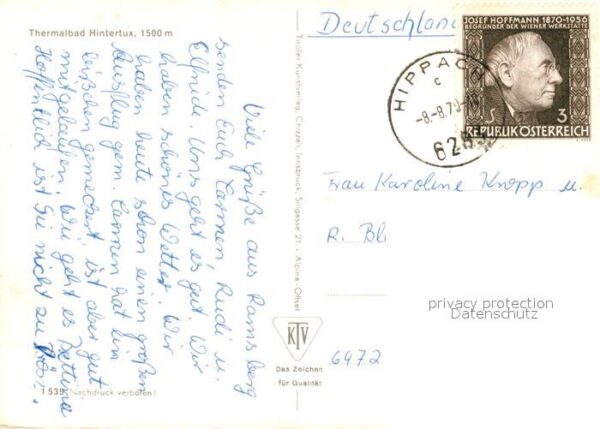 Thermalbad Hintertux, 1500 m
Viele Grüße aus Ramsberg
senden Euch Carmen, Rudi u.
Elfriede. Uns geht es gut. Wir
haben schönes Wetter. Wir
haben heute schon einen großen
Ausflug gem. Carmen hat ein
bißchen gemeckert ist aber gut
mitgelaufen. Wie geht es Bettina
Hoffentlich ist Sie nicht zu
1539 Nachdruck verboten!
Tiroler Kunstverlag, Chizzali, Innsbruck, Sillgasse 21 - Alpina-Offset
KTV
Das Zeichen
für Qualität
Deutschland
JOSEF HOFFMANN 1870-1956
BEGRÜNDER DER WIENER WERKSTÄTTE
S 3
REPUBLIK ÖSTERREICH
HIPPACH
c
-8.-8.70
628
Frau Karoline Knopp u.
R. Bl
privacy protection
Datenschutz
6472